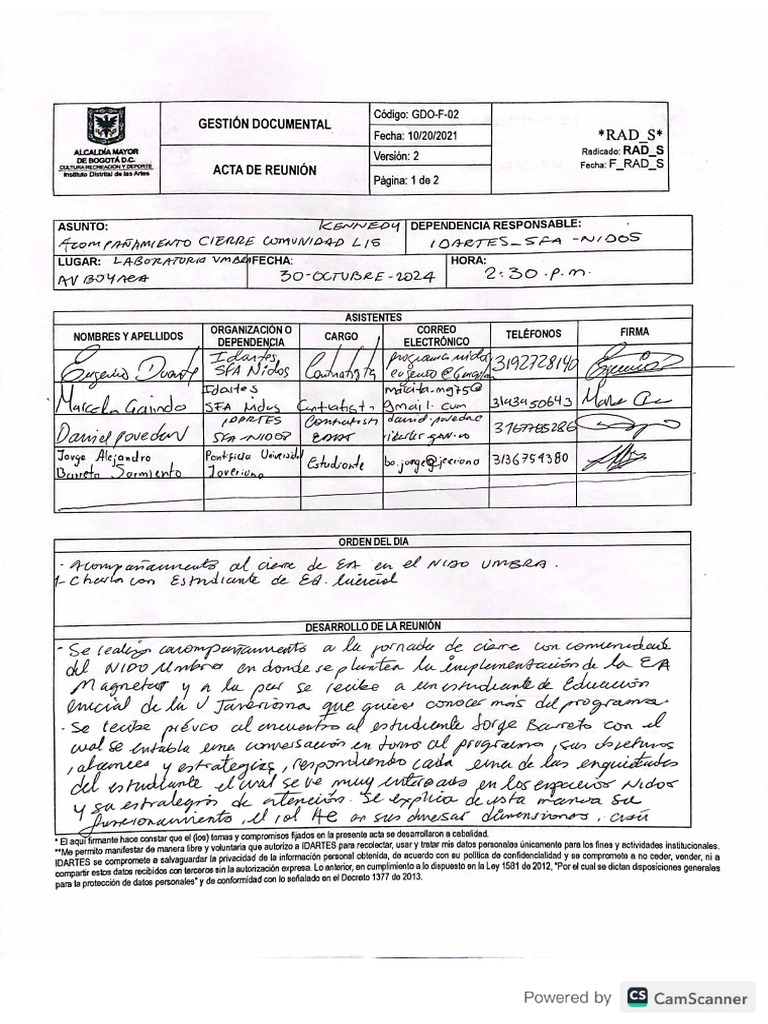 ALCALDÍA MAYOR
DE BOGOTÁ D.C.
CULTURA RECREACIÓN Y DEPORTE
Instituto Distrital de las Artes
GESTIÓN DOCUMENTAL
ACTA DE REUNIÓN
Código: GDO-F-02
Fecha: 10/20/2021
Versión: 2
Página: 1 de 2
*RAD_S*
Radicado: RAD_S
Fecha: F_RAD_S
ASUNTO: KENNEDY
ACOMPAÑAMIENTO CIERRE COMUNIDAD LIS
DEPENDENCIA RESPONSABLE:
IDARTES_SFA-NIDOS
LUGAR: LABORATORIO UMBRA
AV BOYACA
FECHA:
30-OCTUBRE-2024
HORA:
2:30.p.m.
ASISTENTES
NOMBRES Y APELLIDOS ORGANIZACIÓN O DEPENDENCIA CARGO CORREO ELECTRÓNICO TELÉFONOS FIRMA
Eugenio Duarte Idartes SFA Nidos Contratista programa nidos 3192728140
Marcela Galindo Idartes SFA Nidos Contratist. gmail.com 3143450643
Daniel Poveda IDARTES SFA-NIDOS Contratista
Jorge Alejandro Barreto Sarmiento Pontificia Universidad Javeriana Estudiante bo.jorge@javeriana 3136754380
ORDEN DEL DIA
- Acompañamiento al cierre de EA en el NIDO UMBRA.
1- Charla con Estudiante de Ed. Inicial
DESARROLLO DE LA REUNIÓN
- Se realiza acompañamiento a la jornada de cierre con comunidade
del NIDO Umbra en donde se plantea la implementación de la EA
Magnetar y a la par se recibe a un estudiante de Educación
inicial de la U Javeriana que quiere conocer más del programa.
- Se recibe prévio al encuentro al estudiante Jorge Barreto con el
cual se entabla una conversación en torno al programa, sus objetivos
, alcances y estrategias, respondiendo cada una de las inquietudes
del estudiante el cual se ve muy interesado en los espacios Nidos
y su estrategias de atención. Se explica de esta manera su
funcionamiento, el rol AC en sus diversas dimensiones,
* El aquí firmante hace constar que el (los) temas y compromisos fijados en la presente acta se desarrollaron a cabalidad.
**Me permito manifestar de manera libre y voluntaria que autorizo a IDARTES para recolectar, usar y tratar mis datos personales únicamente para los fines y actividades institucionales.
IDARTES se compromete a salvaguardar la privacidad de la información personal obtenida, de acuerdo con su política de confidencialidad y se compromete a no ceder, vender, ni a
compartir estos datos recibidos con terceros sin la autorización expresa. Lo anterior, en cumplimiento a lo dispuesto en la Ley 1581 de 2012, "Por el cual se dictan disposiciones generales
para la protección de datos personales" y de conformidad con lo señalado en el Decreto 1377 de 2013.
Powered by CS CamScanner